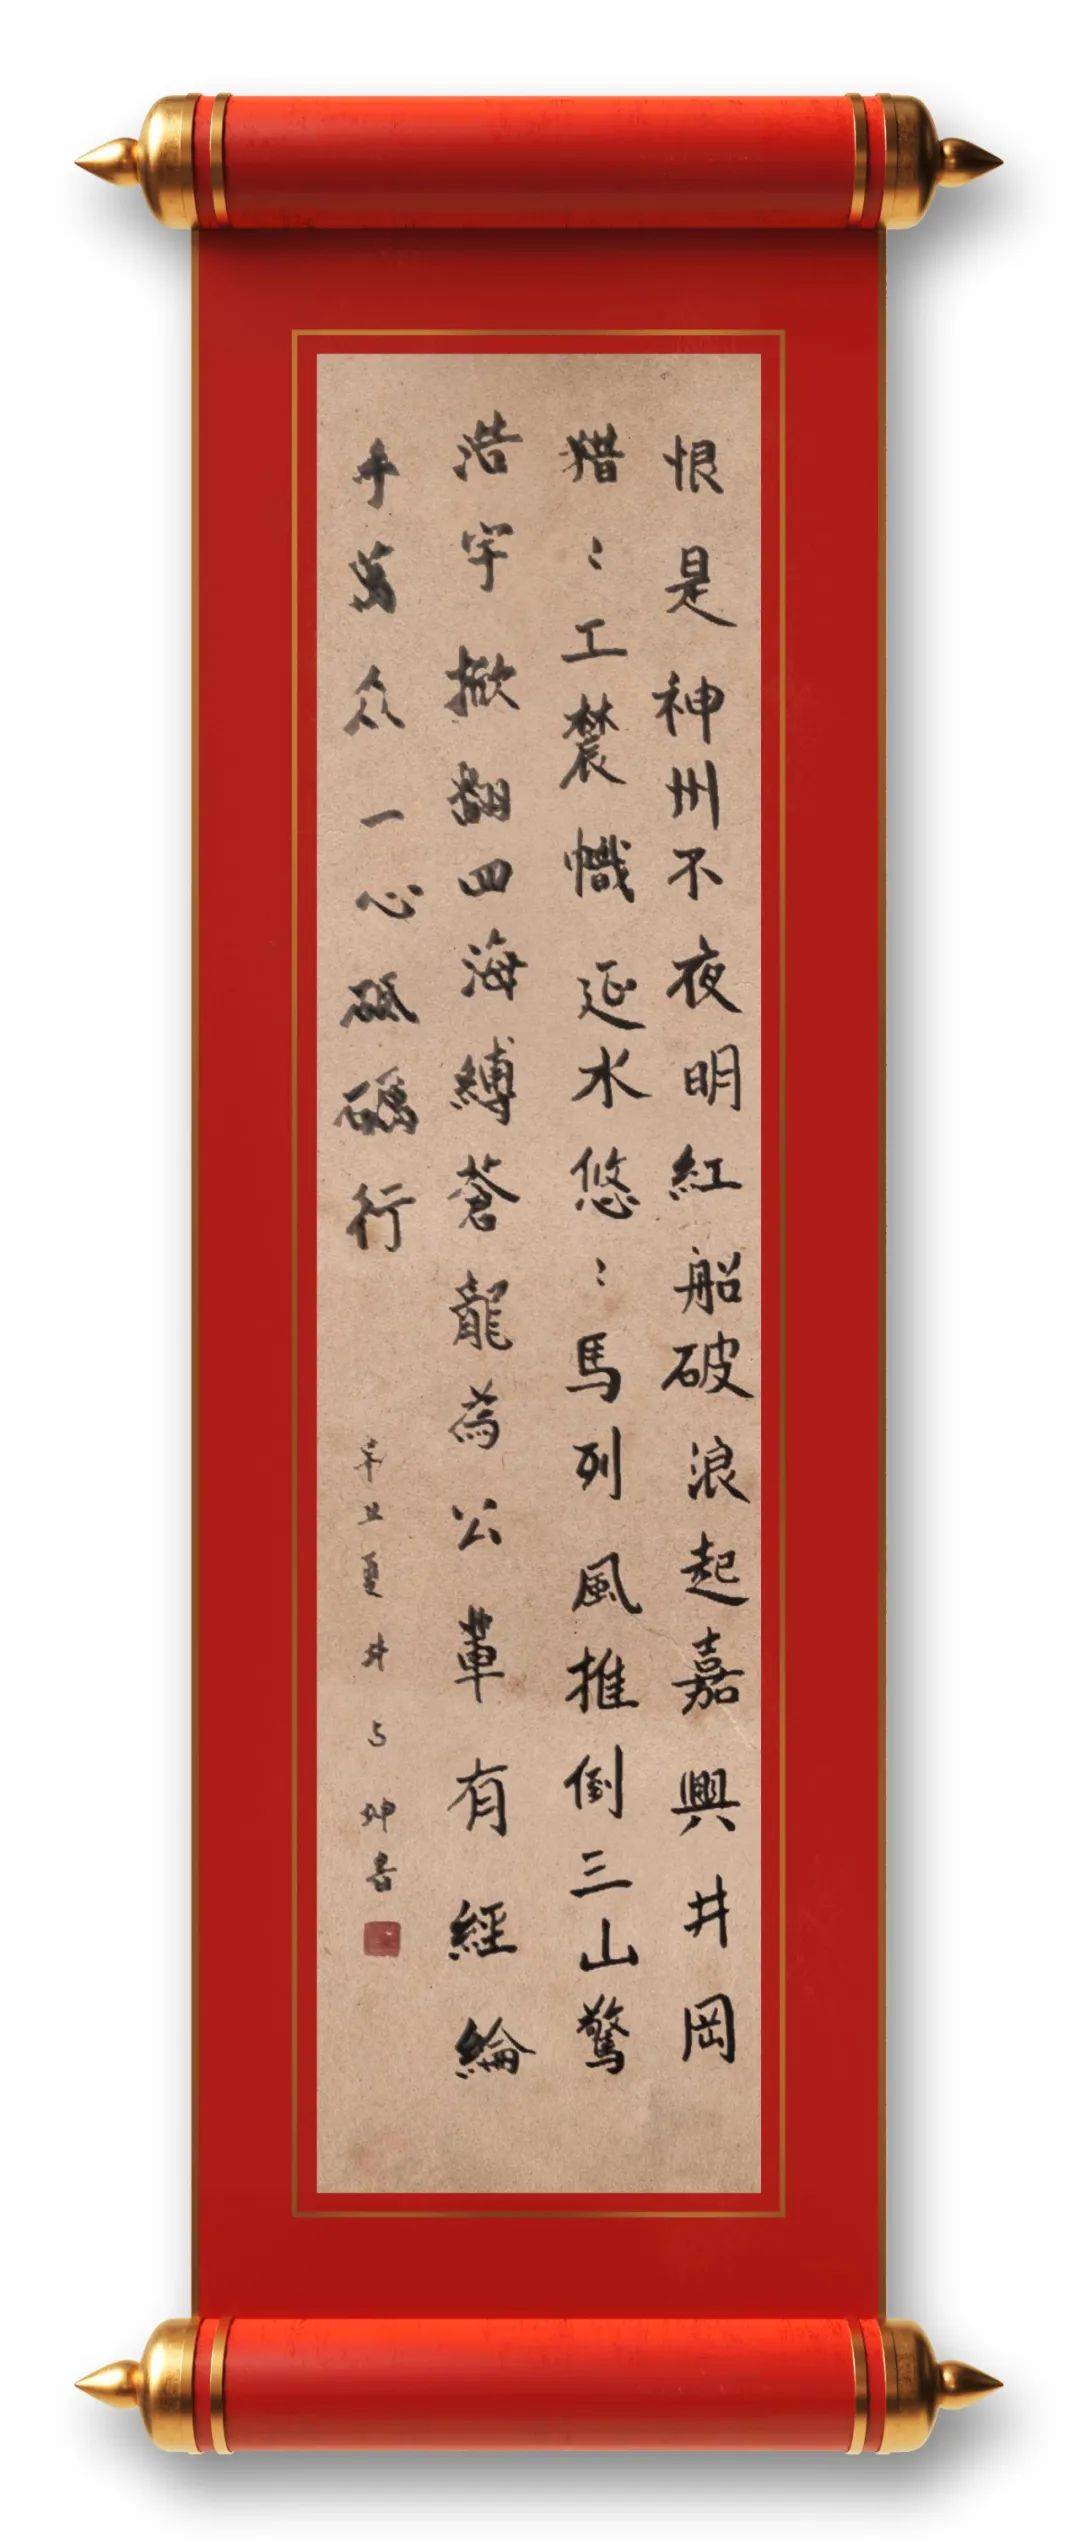 恨是神州不夜明紅船破浪起嘉興井岡
猎〻工農幟延水悠〻馬列風推倒三山驚
浩宇掀翻四海縛蒼龍為公輩有經綸
千萬众一心砥礪行
辛丑夏井与坤書